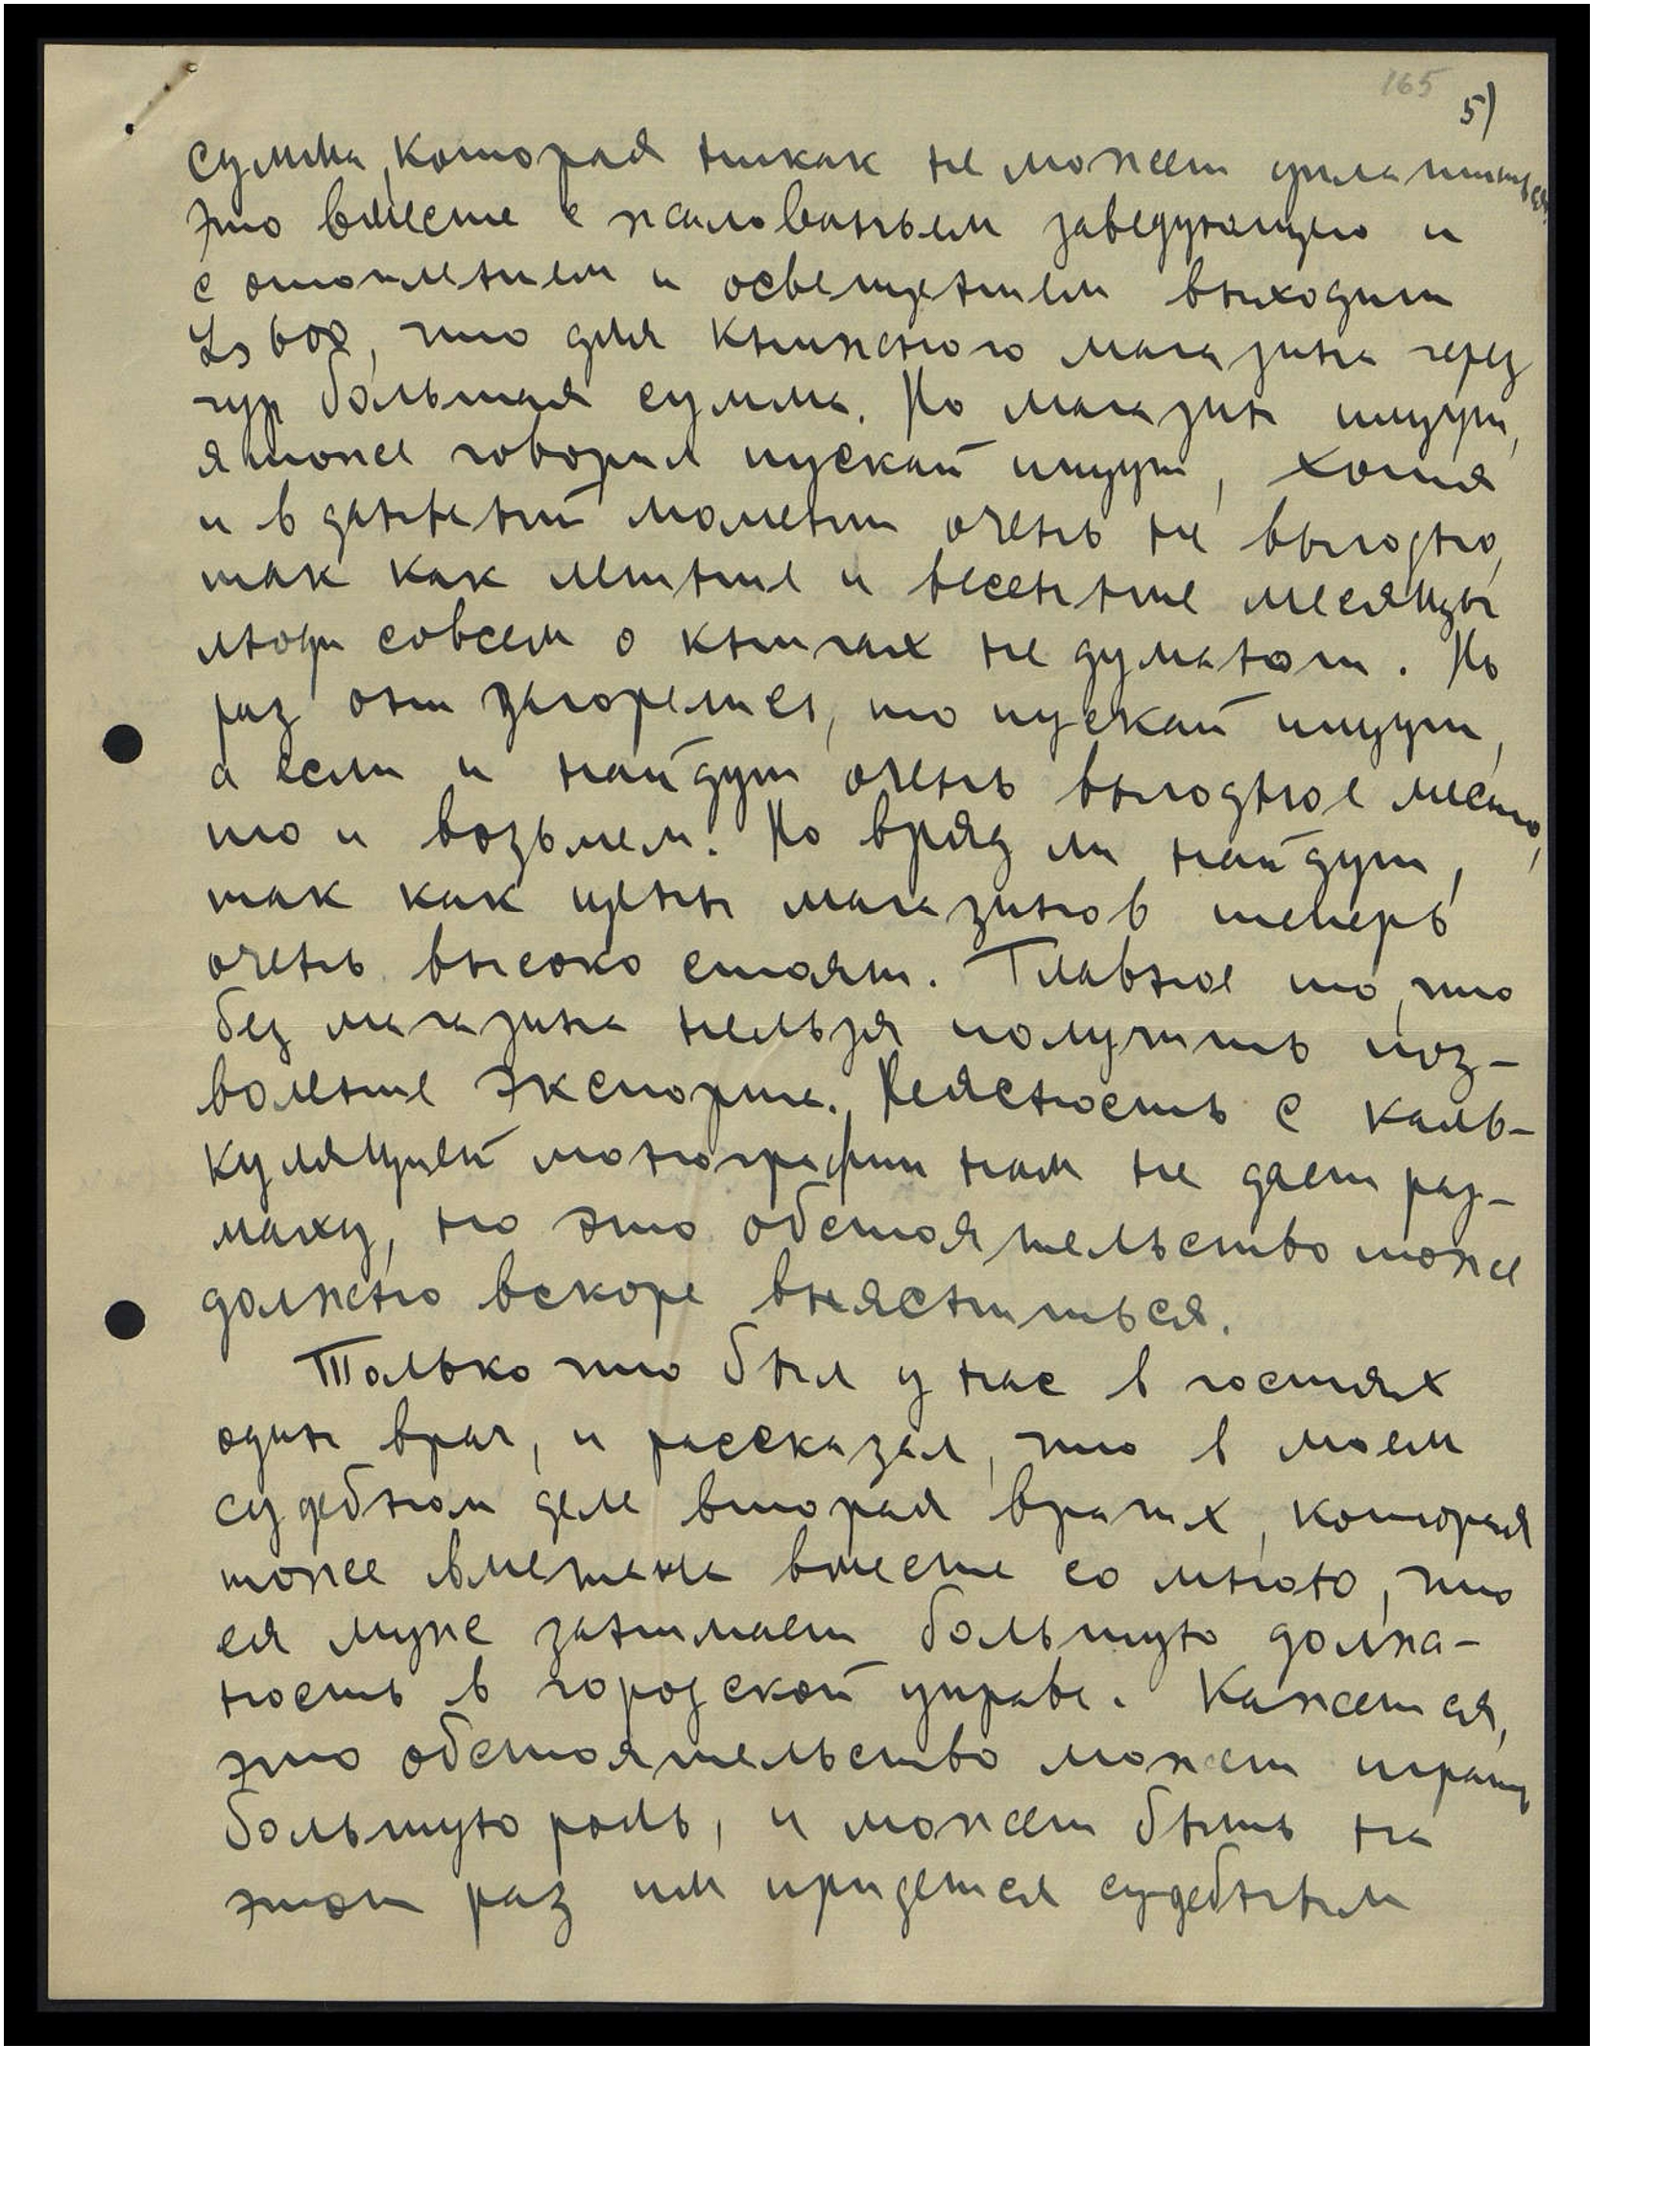 165
5)
сумма, которая никак не может уплатиться,
это вместе с жалованьем заведующего и
с отоплением и освещением выходит
Ls 600, что для книжного магазина через
чур большая сумма. Но магазин ищут,
я тоже говорил пускай ищут, хотя
и в данный момент очень не выгодно,
так как летние и весенние месяцы
люди совсем о книгах не думают. Но
раз они загорелись, то пускай ищут,
а если и найдут очень выгодное место,
то и возьмем. Но вряд ли найдут,
так как цены магазинов теперь
очень высоко стоят. Главное то, что
без магазина нельзя получить поз-
воление экспорта. Неясность с каль-
куляцией монографии нам не дает раз-
маху, но это обстоятельство тоже
должно вскоре выясниться.
Только что был у нас в гостях
один врач, и рассказал, что в моем
судебном деле вторая врачих, которая
тоже вмешана вместе со мною, что
ея муже занимает большую долж-
ность в городской управе. Кажется,
это обстоятельство может играть
большую роль, и может быть на
этот раз им придется судебным